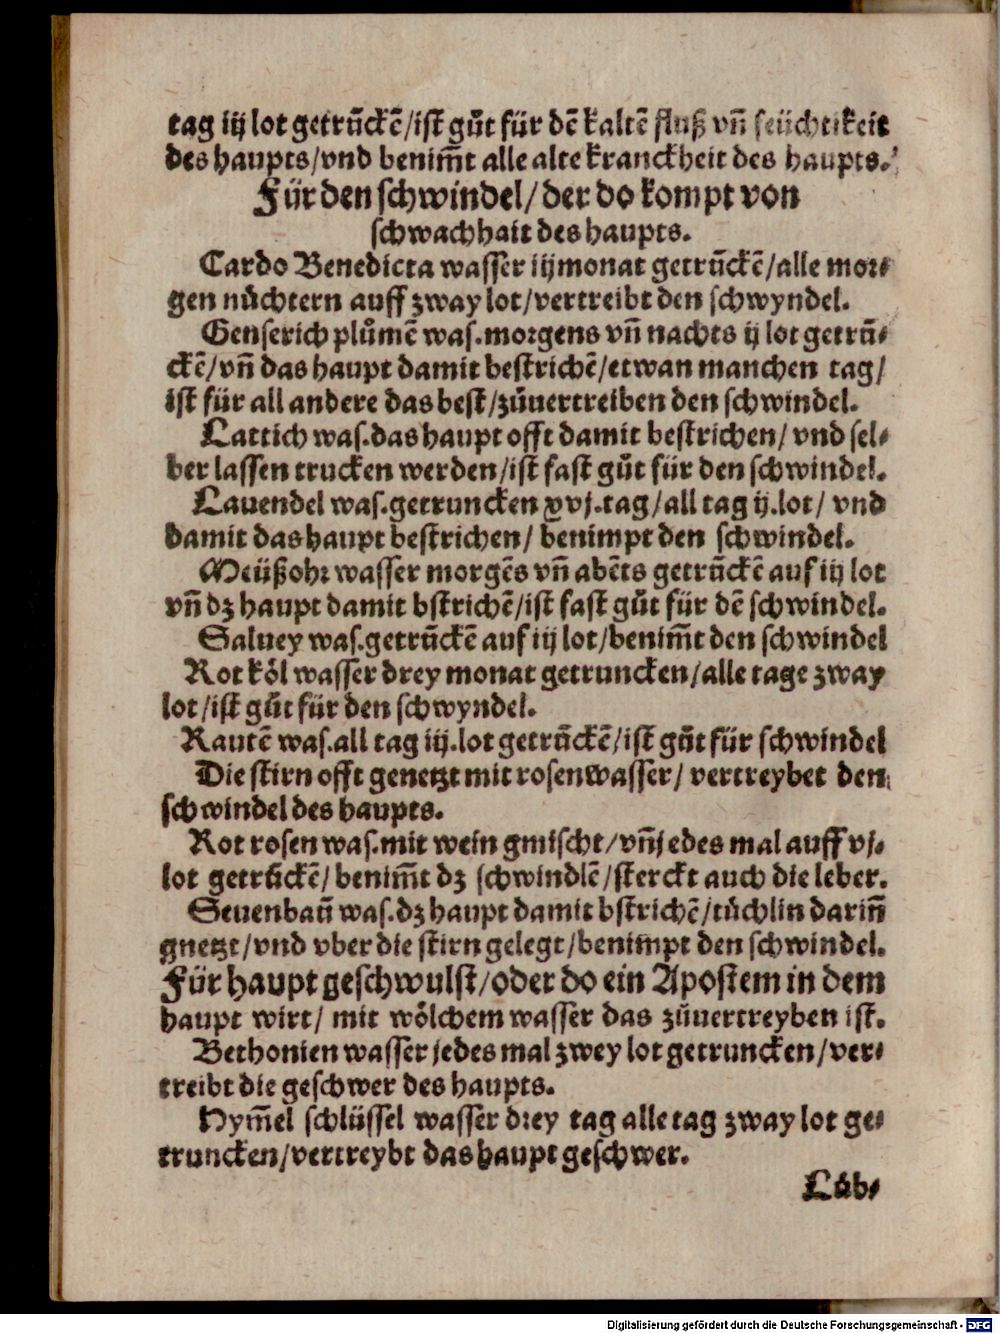 tag iij lot getrūckē/ist gůt für dē kaltē fluß vñ feüchtikeit
des haupts/vnd benim̄t alle alte kranckheit des haupts.
Für den schwindel/der do kompt von
schwachhait des haupts.
Cardo Benedicta wasser iij monat getrūckē/alle mor⸗
gen nůchtern auff zway lot/vertreibt den schwyndel.
Genserich plůmē was. morgens vñ nachts ij lot getrū⸗
ckē/vñ das haupt damit bestrichē/etwan manchen tag/
ist für all andere das best/zůuertreiben den schwindel.
Lattich was. das haupt offt damit bestrichen/ vnd sel⸗
ber lassen trucken werden/ist fast gůt für den schwindel.
Lauendel was. getruncken xvj. tag/all tag ij. lot/ vnd
damit das haupt bestrichen/ benimpt den schwindel.
Meüßohr wasser morgēs vñ abēts getrūckē auf iij lot
vñ dz haupt damit bstrichē/ist fast gůt für dē schwindel.
Saluey was. getrūckē auf iij lot/benim̄t den schwindel
Rot köl wasser drey monat getruncken/alle tage zway
lot/ist gůt für den schwyndel.
Rautē was. all tag iij. lot getrūckē/ist gůt für schwindel
Die stirn offt genetzt mit rosenwasser/ vertreybet den
schwindel des haupts.
Rot rosen was. mit wein gmischt/vñ jedes mal auff vj.
lot getrūckē/ benim̄t dz schwindlē/sterckt auch die leber.
Seuenbaū was. dz haupt damit bstrichē/tüchlin dariñ
gnetzt/vnd vber die stirn gelegt/benimpt den schwindel.
Für haupt geschwulst/oder do ein Apostem in dem
haupt wirt/ mit wölchem wasser das zůuertreyben ist.
Bethonien wasser jedes mal zwey lot getruncken/ver⸗
treibt die geschwer des haupts.
Hym̄el schlüssel wasser drey tag alle tag zway lot ge⸗
truncken/vertreybt das haupt geschwer.
Lüb⸗
Digitalisierung gefördert durch die Deutsche Forschungsgemeinschaft - DFG